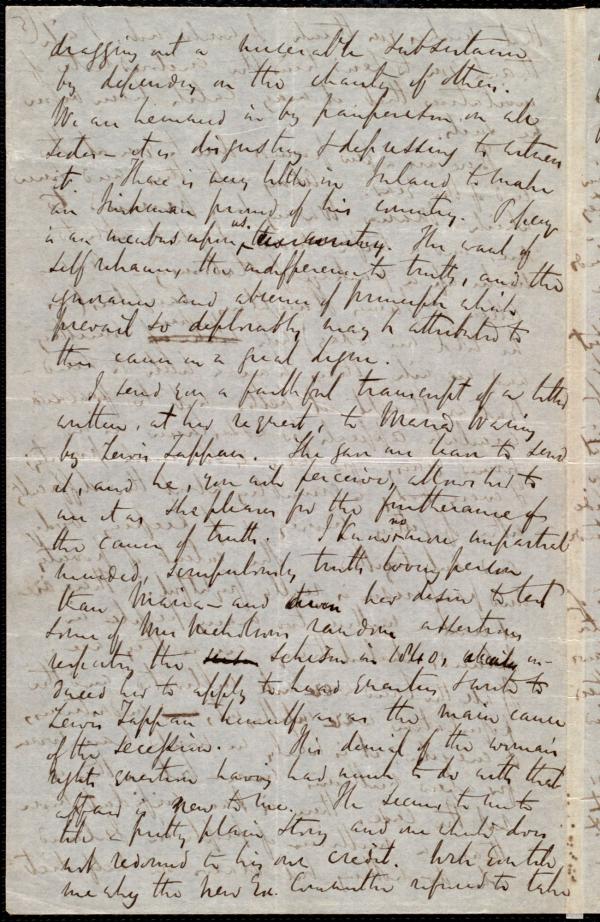 dragging out a miserable subsistence
by depending on the charity of others.
We are hemmed in by pauperism on all
sides – it is disgusting & depressing to witness
it. There is very little in Ireland to make
an Irishman proud of his country. Popery
is an incubus upon us. The want of
self reliance, the indifference to truth, and the
ignorance and absence of principle which
prevail so deplorably may be attributed to
this cause in a great degree.
I send you a faithful transcript of a letter
written, at her request, to Maria Waring
by Lewis Tappan. She gave me leave to send
it, and he, you will perceive, allows her to
use it as she pleases for the furtherance of
the cause of truth. I know no more impartial
minded, scrupulously truth loving person
than Maria – and her desire to test
some of Mrs Nicholson's random assertions
respecting the schism in 1840, in-
duced her to apply to head quarters & write to
Lewis Tappan, himself as the main cause
of the secession. His denial of the woman's
rights question having had much to do with that
affair is new to me. He seems to me to
tell a pretty plain story and one which does
not redound to his own credit. Will you tell
me why the new Ex. Committee refused to take